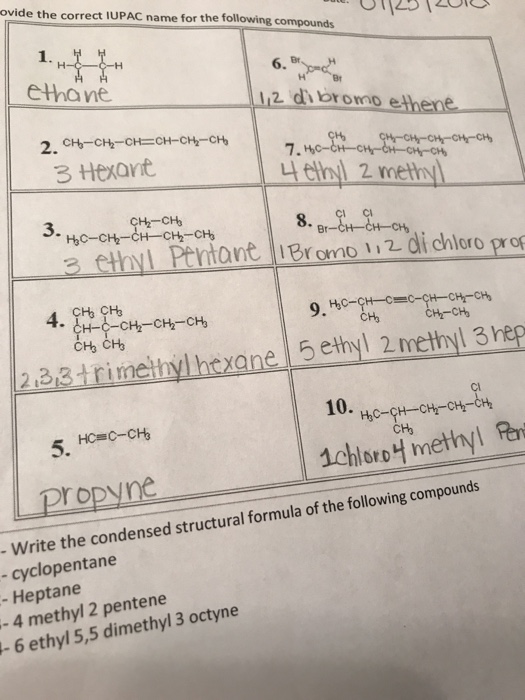 ovide the correct IUPAC name for the following compounds
1.
H H
H-C-C-H
H H
ethane
6.
Br H
C=C
H Br
1,2 dibromo ethene
2. CH₃-CH₂-CH=CH-CH₂-CH₃
3 Hexane
CH₃ CH₂-CH₂-CH₂-CH₂-CH₃
7. H₃C-CH-CH₂-CH-CH₂-CH₃
4 ethyl 2 methyl
CH₂-CH₃
3. H₃C-CH₂-CH-CH₂-CH₃
3 ethyl Pentane
Cl Cl
8. Br-CH-CH-CH₃
1Bromo 1,2 dichloro prop
CH₃ CH₃
4. CH-C-CH₂-CH₂-CH₃
CH₃ CH₃
2,3,3 trimethyl hexane
9. H₃C-CH-C≡C-CH-CH₂-CH₃
CH₃ CH₂-CH₃
5 ethyl 2 methyl 3 hep
5. HC≡C-CH₃
propyne
Cl
10. H₃C-CH-CH₂-CH₂-CH₂
CH₃
1chloro4 methyl Pen
- Write the condensed structural formula of the following compounds
- cyclopentane
- Heptane
- 4 methyl 2 pentene
- 6 ethyl 5,5 dimethyl 3 octyne